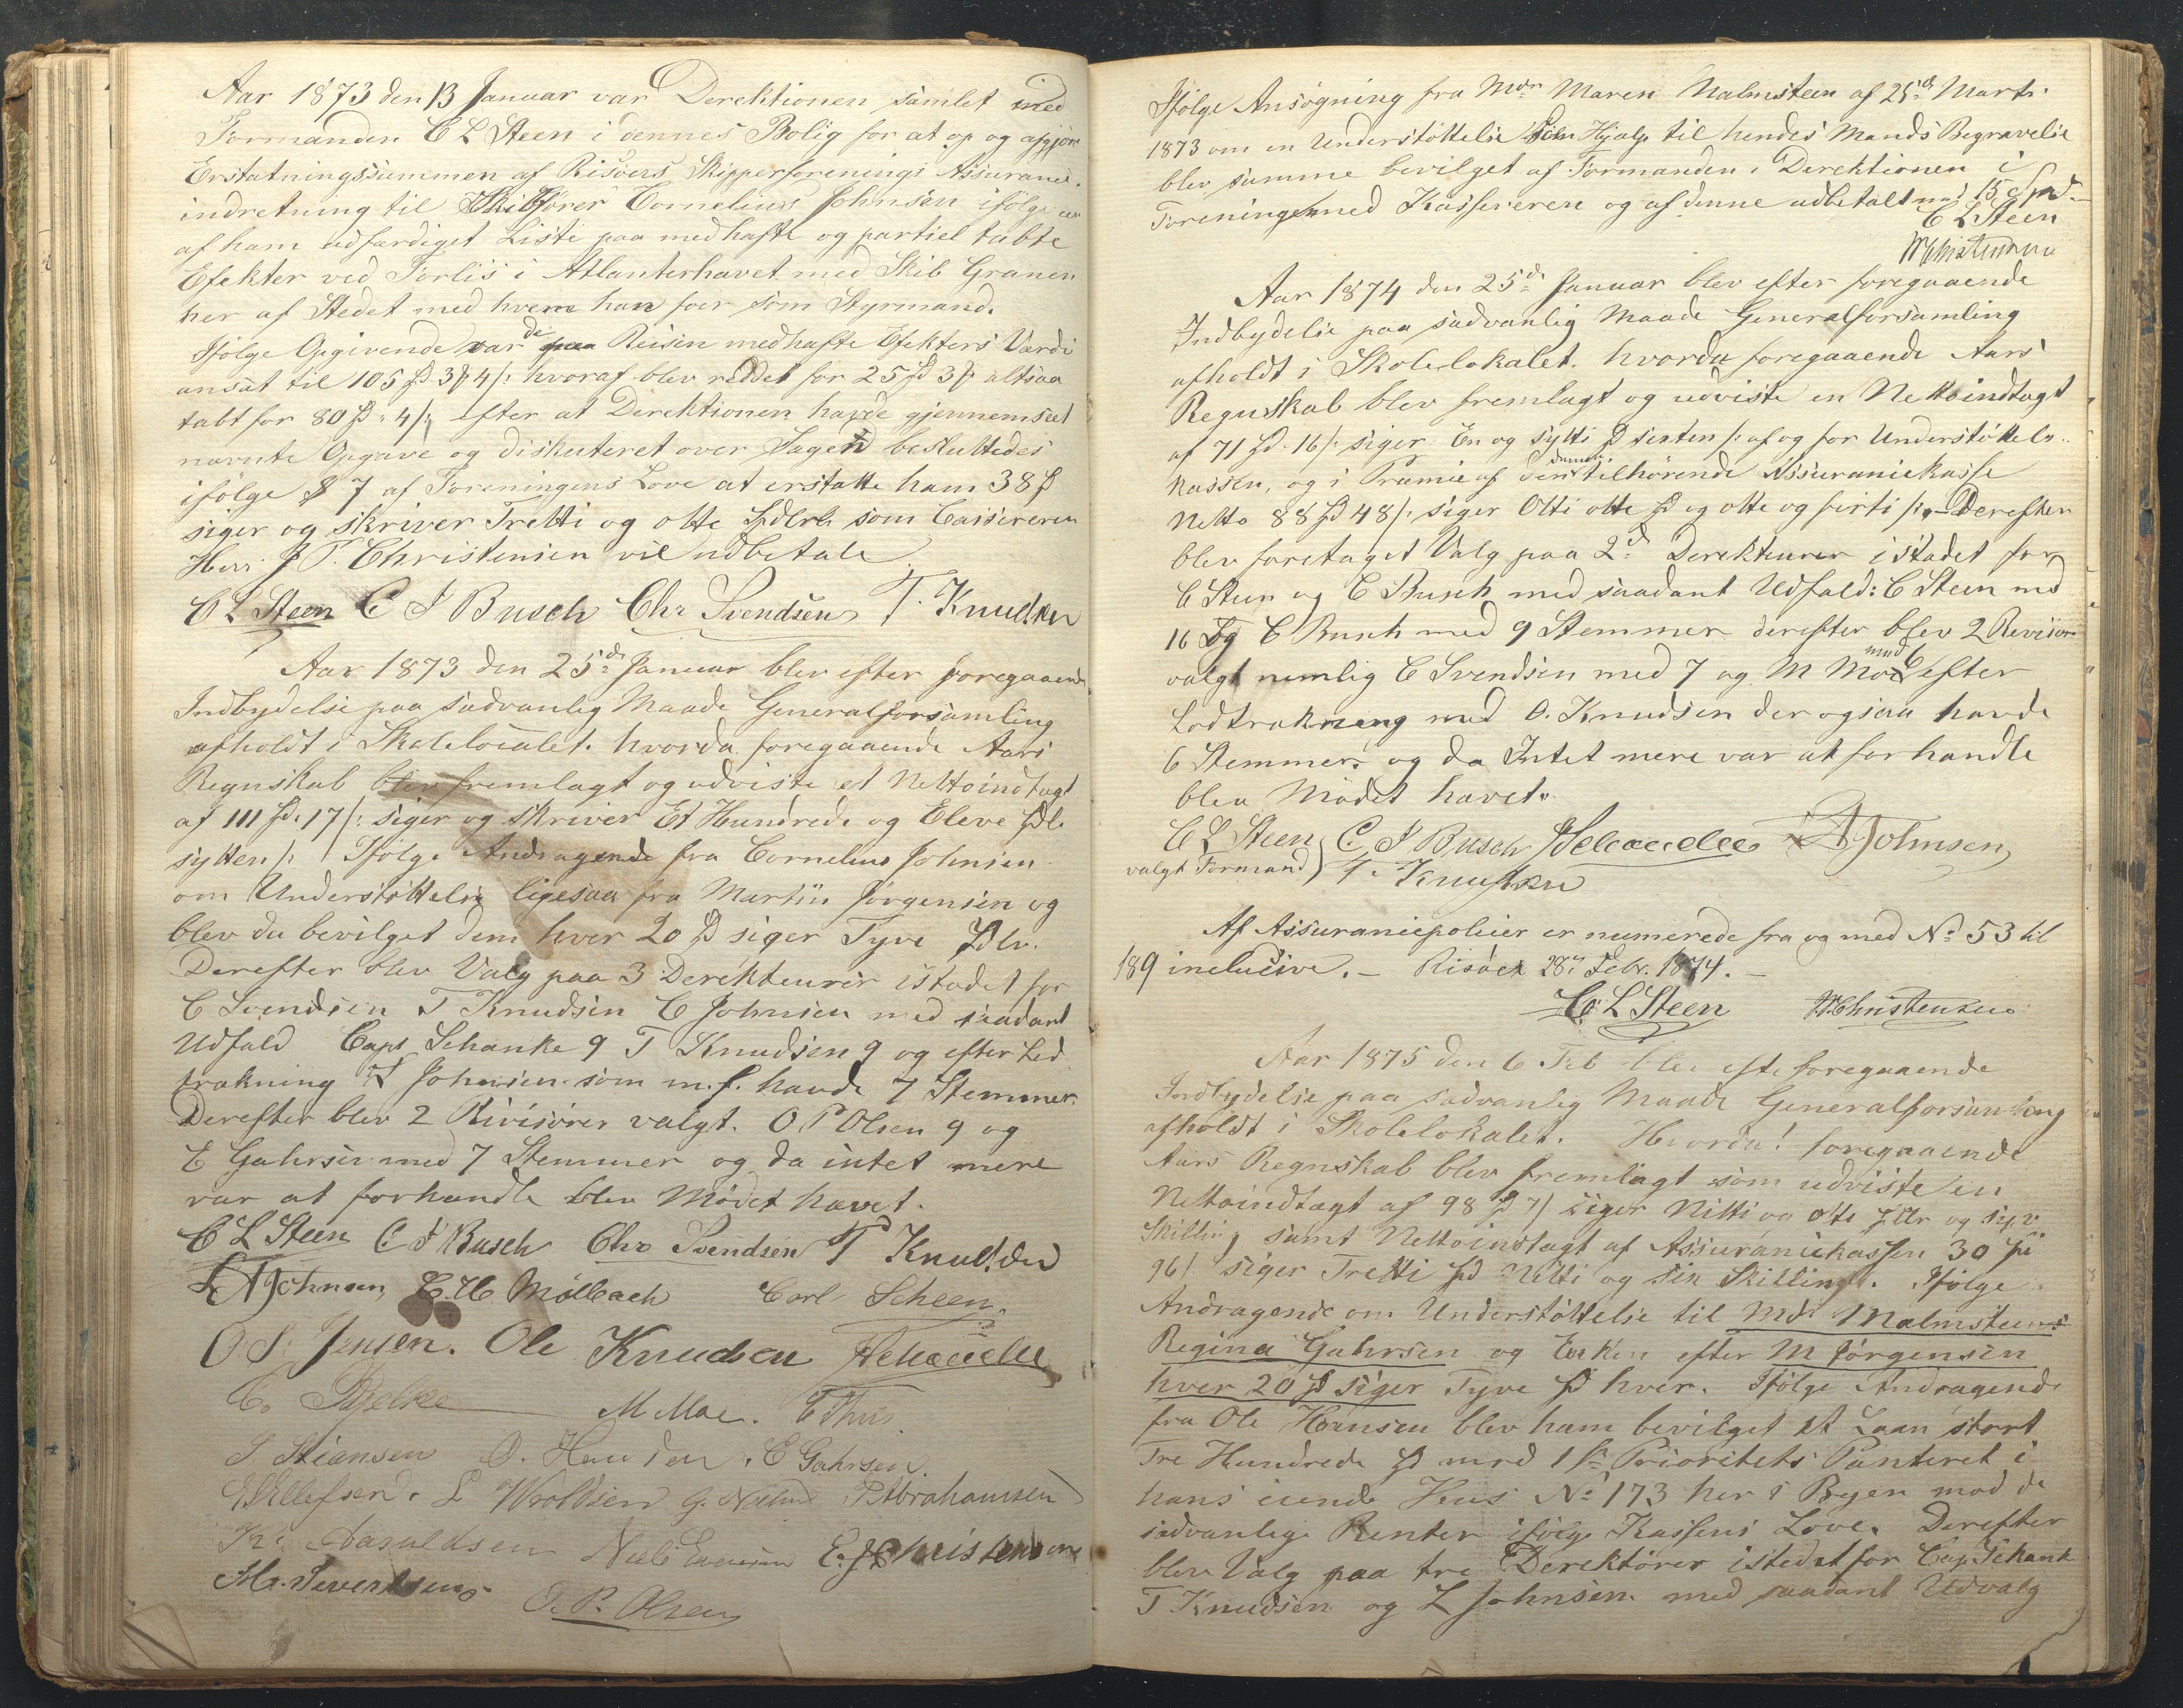 Aar 1873 den 13 Januar var Derektionen samlet med
Formanden C L Steen i dennes Bolig for at op og afgjøre
Erstatningssummen af Risøers Skipperforenings Assurance-
indretning til Skibsfører Cornelius Johnsen ifølge en
af ham udfærdiget Liste paa medhafte og partiel tabte
Efekter ved Forlis i Atlanterhavet med Skib Granen
her af Stedet med hvem han foer som Styrmand.
Ifølge Opgivende var de paa Reisen medhafte Efekters Værdi
ansat til 105 Spd 3 4 /: hvoraf blev reddet for 25 Spd 3 altsaa
tabt for 80 Spd 4 /: efter at Derektionen havde gjennemseet
nævnte Opgave og diskuteret over Sagen besluttedes
ifølge § 7 af Foreningens Love at erstatte ham 38 Spd
siger og skriver Tretti og otte Spdlr som Cassereren
Herr J P. Christensen vil udbetale.
C L Steen C J Busch Chr Svendsen T. Knudsen
Aar 1873 den 25de Januar blev efter foregaaende
Indbydelse paa sædvanlig Maade Generalforsamling
afholdt i Skolelocalet. hvorda foregaaende Aars
Regnskab blev fremlagt og udviste et Nettoindtægt
af 111 Spd. 17 /: siger og skriver Et Hundrede og Eleve Spdl.
sytten /: Ifølge Andragende fra Cornelius Johnsen
om Understøttelse ligesaa fra Martin Jørgensen og
blev da bevilget dem hver 20 Spd siger Tyve Spdlr.
Derefter blev Valg paa 3 Derekteurer istadet for
C Svendsen T Knudsen C Johnsen med saadant
Udfald Capt Schanke 9 T Knudsen 9 og efter Lod
trækning L Johnsen som m.f. havde 7 Stemmer.
Derefter blev 2 Rivisører valgt. O P Olsen 9 og
E Gahrsen med 7 Stemmer og da intet mere
var at forhandle blev Mødet hævet.
C L Steen C J Busch Chr Svendsen T Knudsen
L A Johnsen Møllbach Carl Scheen
O S. Jensen. Ole Knudsen
M Moe.
S. Stiansen O. Hansen. E Gahrsen.
E Ellefsen. L Woldsen P Abrahamsen
Kr. Aasuldsen E. J Christensen
M. Severtsens O. P. Olsen
Ifølge Ansøgning fra Mdm Maren Malmsteen af 25de Marts
1873 om en Understøttelse som Hjælp til hendes Mands Begravelse
blev samme bevilget af Formanden i Derektionen i
Foreningen med Kassereren og af denne udbetalt med 15 Spd
C L Steen
Christensen
Aar 1874 den 25de Januar blev efter foregaaende
Indbydelse paa sædvanlig Maade Generalforsamling
afholdt i Skolelokalet. hvorda foregaaende Aars
Regnskab blev fremlagt og udviste en Nettoindtægt
af 71 Spd. 16 /: siger En og sytti Spd sexten /: af og for Understøttels..
kassen, og i Præmie af den tilhørende Assurancekasse
Netto 88 Spd 48 /: siger Otti otte Spd og otte og firti /: - Derefter
blev foretaget Valg paa 2de Derekteurer istadet for
C Steen og C Busch med saadant Udfald: C Steen med
16 og C Busch med 9 Stemmer derefter blev 2 Revisor
valgt nemlig C Svendsen med 7 og M Moe med 6 efter
Lodtrækning med O. Knudsen der ogsaa havde
6 Stemmer. og da Intet mere var at forhandle
blev Mødet hævet.
C L Steen C. J Busch L A Johnsen
valgt Formand T. Knudsen
Af Assurancepolicer er numerede fra og med No 53 til
189 inclusive. - Risøer 28de Febr. 1874. -
C L Steen Christensen
Aar 1875 den 6 Feb blev efte foregaaende
Indbydelse paa sædvanlig Maade Generalforsamling
afholdt i Skolelokalet. Hvorda! foregaaende
Aars Regnskab blev fremlagt som udviste en
Nettoindtægt af 98 Spd 7 / siger Nitti og otte Spdlr og syv
Skilling samt Nettoindtægt af Assurancekassen 30 Spd
96 / siger Tretti Spd Nitti og sex Skilling. Ifølge
Andragende om Understøttelse til Md. Malmsteens
Regina Gahrsen og Enken efter M Jørgensen
hver 20 Spd siger Tyve Spd hver. Ifølge Andragende
fra Ole Hansen blev ham bevilget et Laan stort
Tre Hundrede Spd mod 1ste Prioritets Panteret i
hans eiende Huus No 173 her i Byen mod de
sædvanlige Renter ifølge Kassens Love. Derefter
blev Valg paa tre Derektører istedetfor Cap. Schank
T Knudsen og L Johnsen med saadant Udvalg